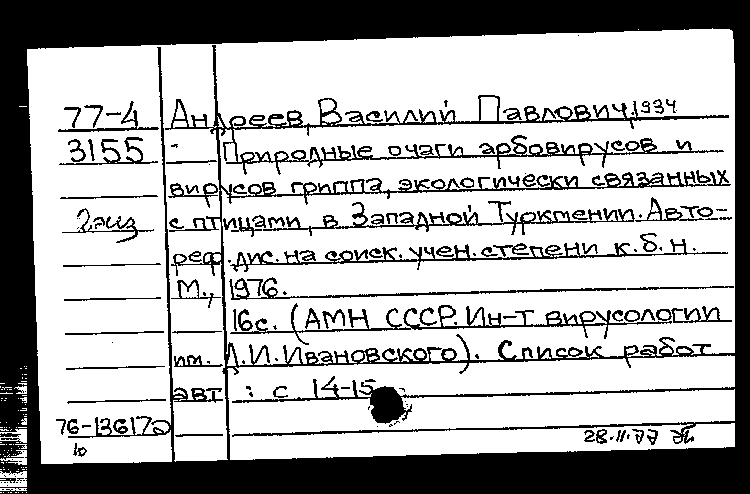 77-4 Андреев, Василий Павлович, 1934
3155 - Природные очаги арбовирусов и
вирусов гриппа, экологически связанных
2 экз с птицами, в Западной Туркмении. Авто-
реф. дис. на соиск. учен. степени к.б.н.
М., 1976.
16с. (АМН СССР. Ин-т вирусологии
им. Д.И. Ивановского). Список работ
авт : с 14-15
76-13617
28.11.77